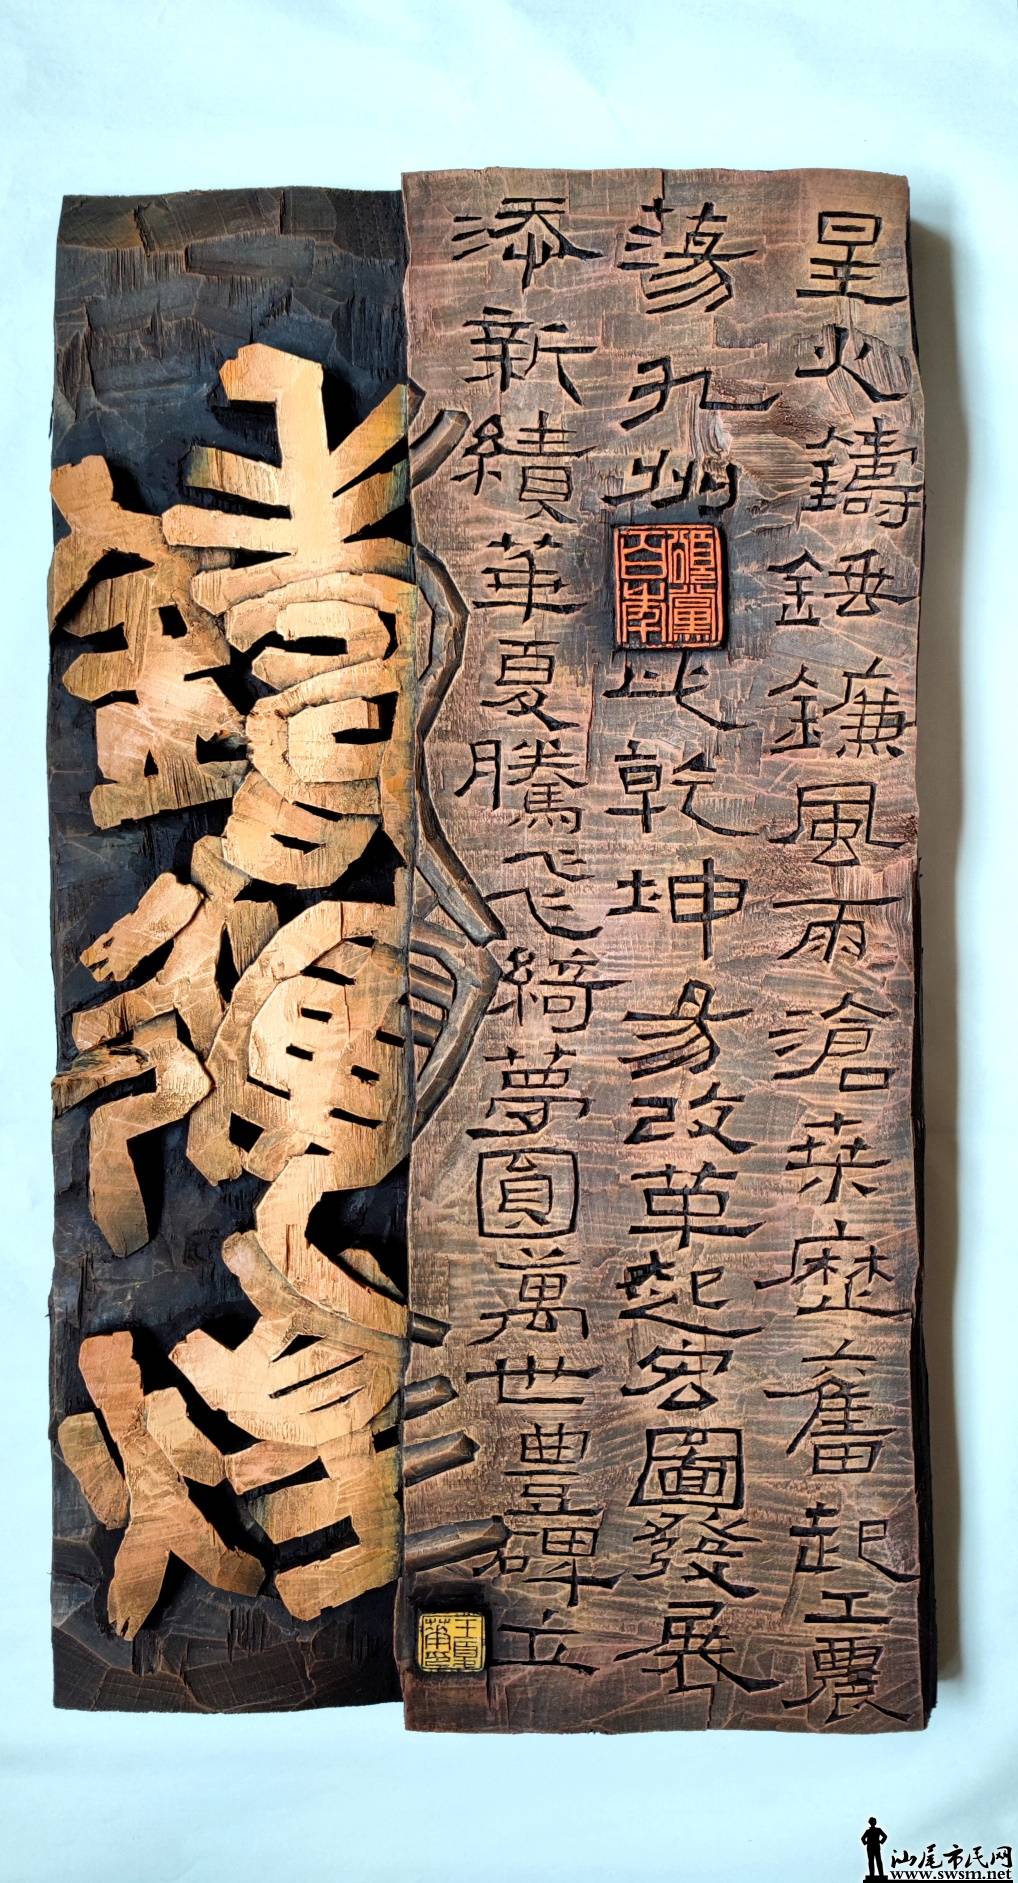 星火鑄錘鐮風雨滄桑歷奮起工農
蕩九州
頌黨百年
此乾坤易改革起宏圖發展
添新績華夏騰飛綺夢圓萬世豐碑立
汕尾市民网
www.swsm.net